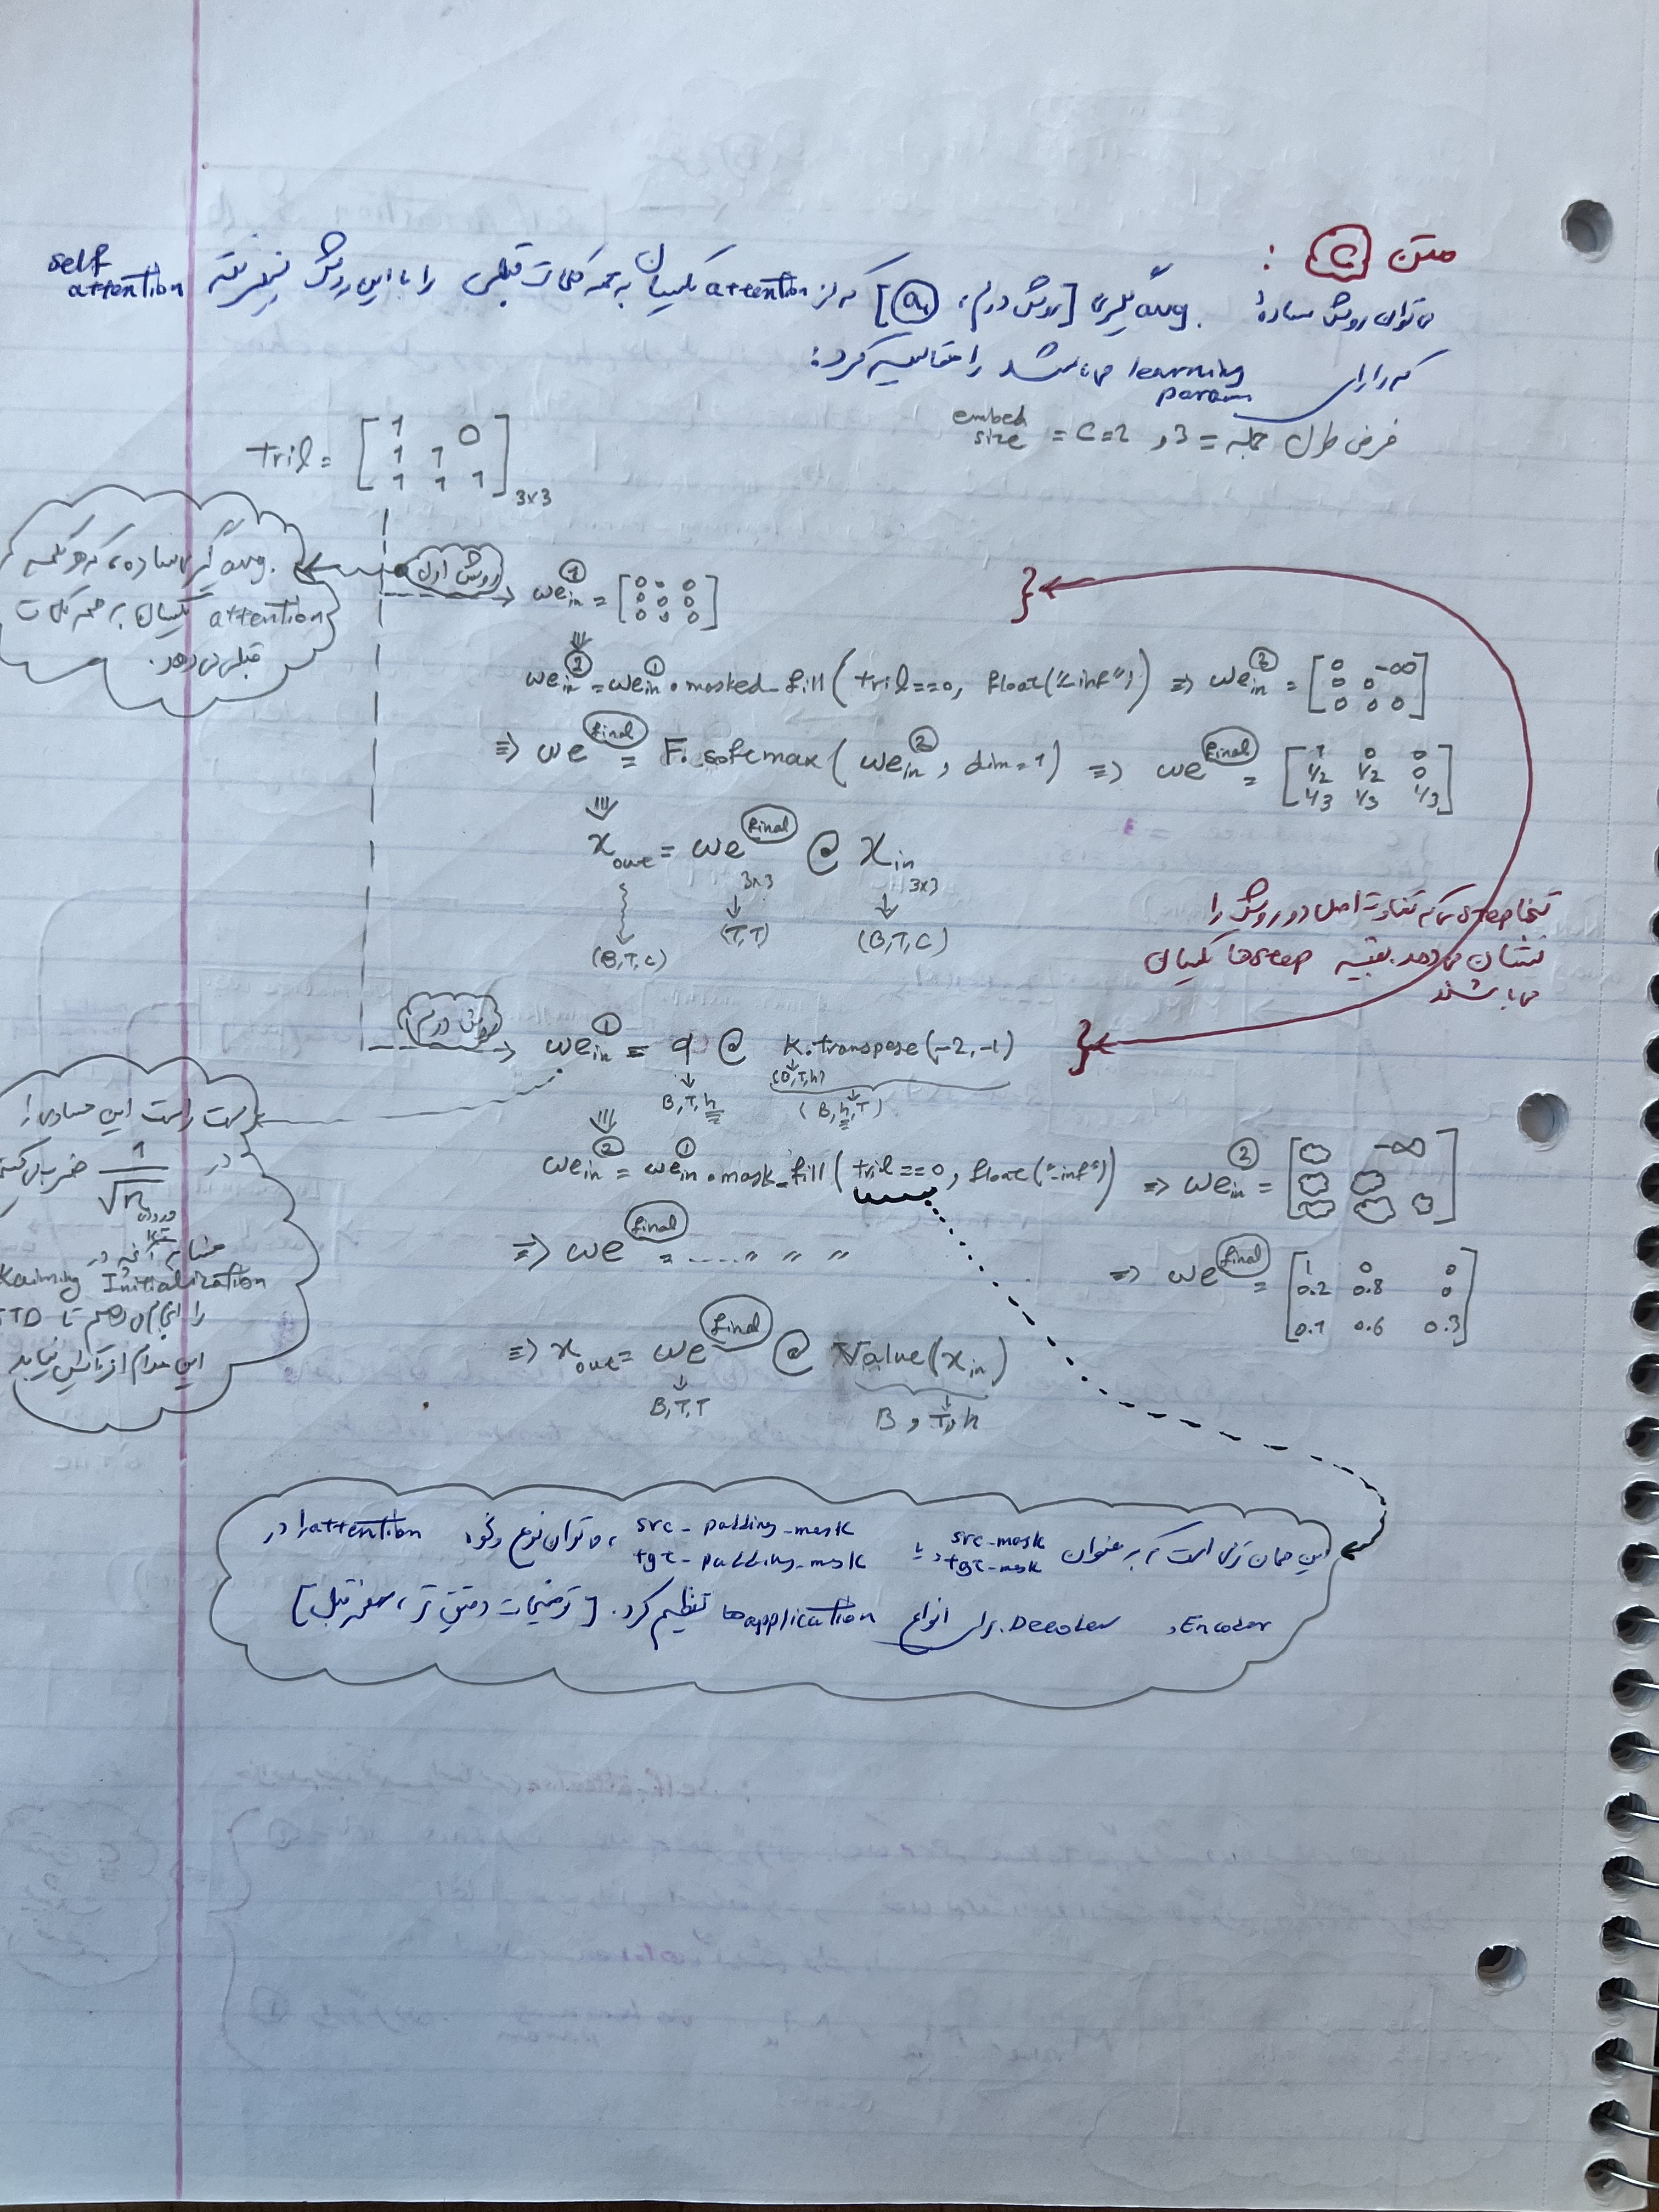 متن C :
می توان روش ساده avg. گیری [روش دوم، a] که از attention یکسان به همه کلمات قبلی را با این روش پیشرفته self attention
که دارای learning param می باشد را مقایسه کرد:
فرض طول جمله = 3 , embed size = C = 2
tril = [1 0
1 1
1 1 1] 3x3
روش اول
avg. گیری ساده، که هر کلمه
attention یکسان به همه کلمات
قبلی می دهد.
we in ① = [0 0 0
0 0 0
0 0 0]
we in ② = we in ① . masked_fill(tril==0, float("-inf")) ⇒ we in ② = [0 -∞
0 0
0 0 0]
⇒ we final = F.softmax(we in ②, dim=1) ⇒ we final = [1 0 0
1/2 1/2 0
1/3 1/3 1/3]
x out = we final @ x in
3x3 3x3
(B,T,C) (T,T) (B,T,C)
تنها step ی که تفاوت اصلی دو روش را
نشان می دهد. بقیه step ها یکسان
می باشند
روش دوم
we in ① = q @ K.transpose(-2,-1)
(B,T,h)
B,T,h (B,h,T)
سمت راست این مساوی را
در 1/√h ضرب می کنیم
مشابه آنچه در
Kaiming Initialization
را انجام می دهیم تا STD
این مدام افزایش نیابد
we in ② = we in ① . mask_fill(tril==0, float("-inf")) ⇒ we in ② = [ -∞ ]
⇒ we final = .... " " " ⇒ we final = [1 0 0
0.2 0.8 0
0.1 0.6 0.3]
⇒ x out = we final @ Value(x in)
B,T,T B,T,h
این همان تری است که به عنوان src-mask tgt-mask و یا src-padding-mask tgt-padding-mask ، می توان نوع و نحوه attention را در
Encoder و Decoder برای انواع application ها تنظیم کرد. [توضیحات دقیق تر ، صفحه قبل]